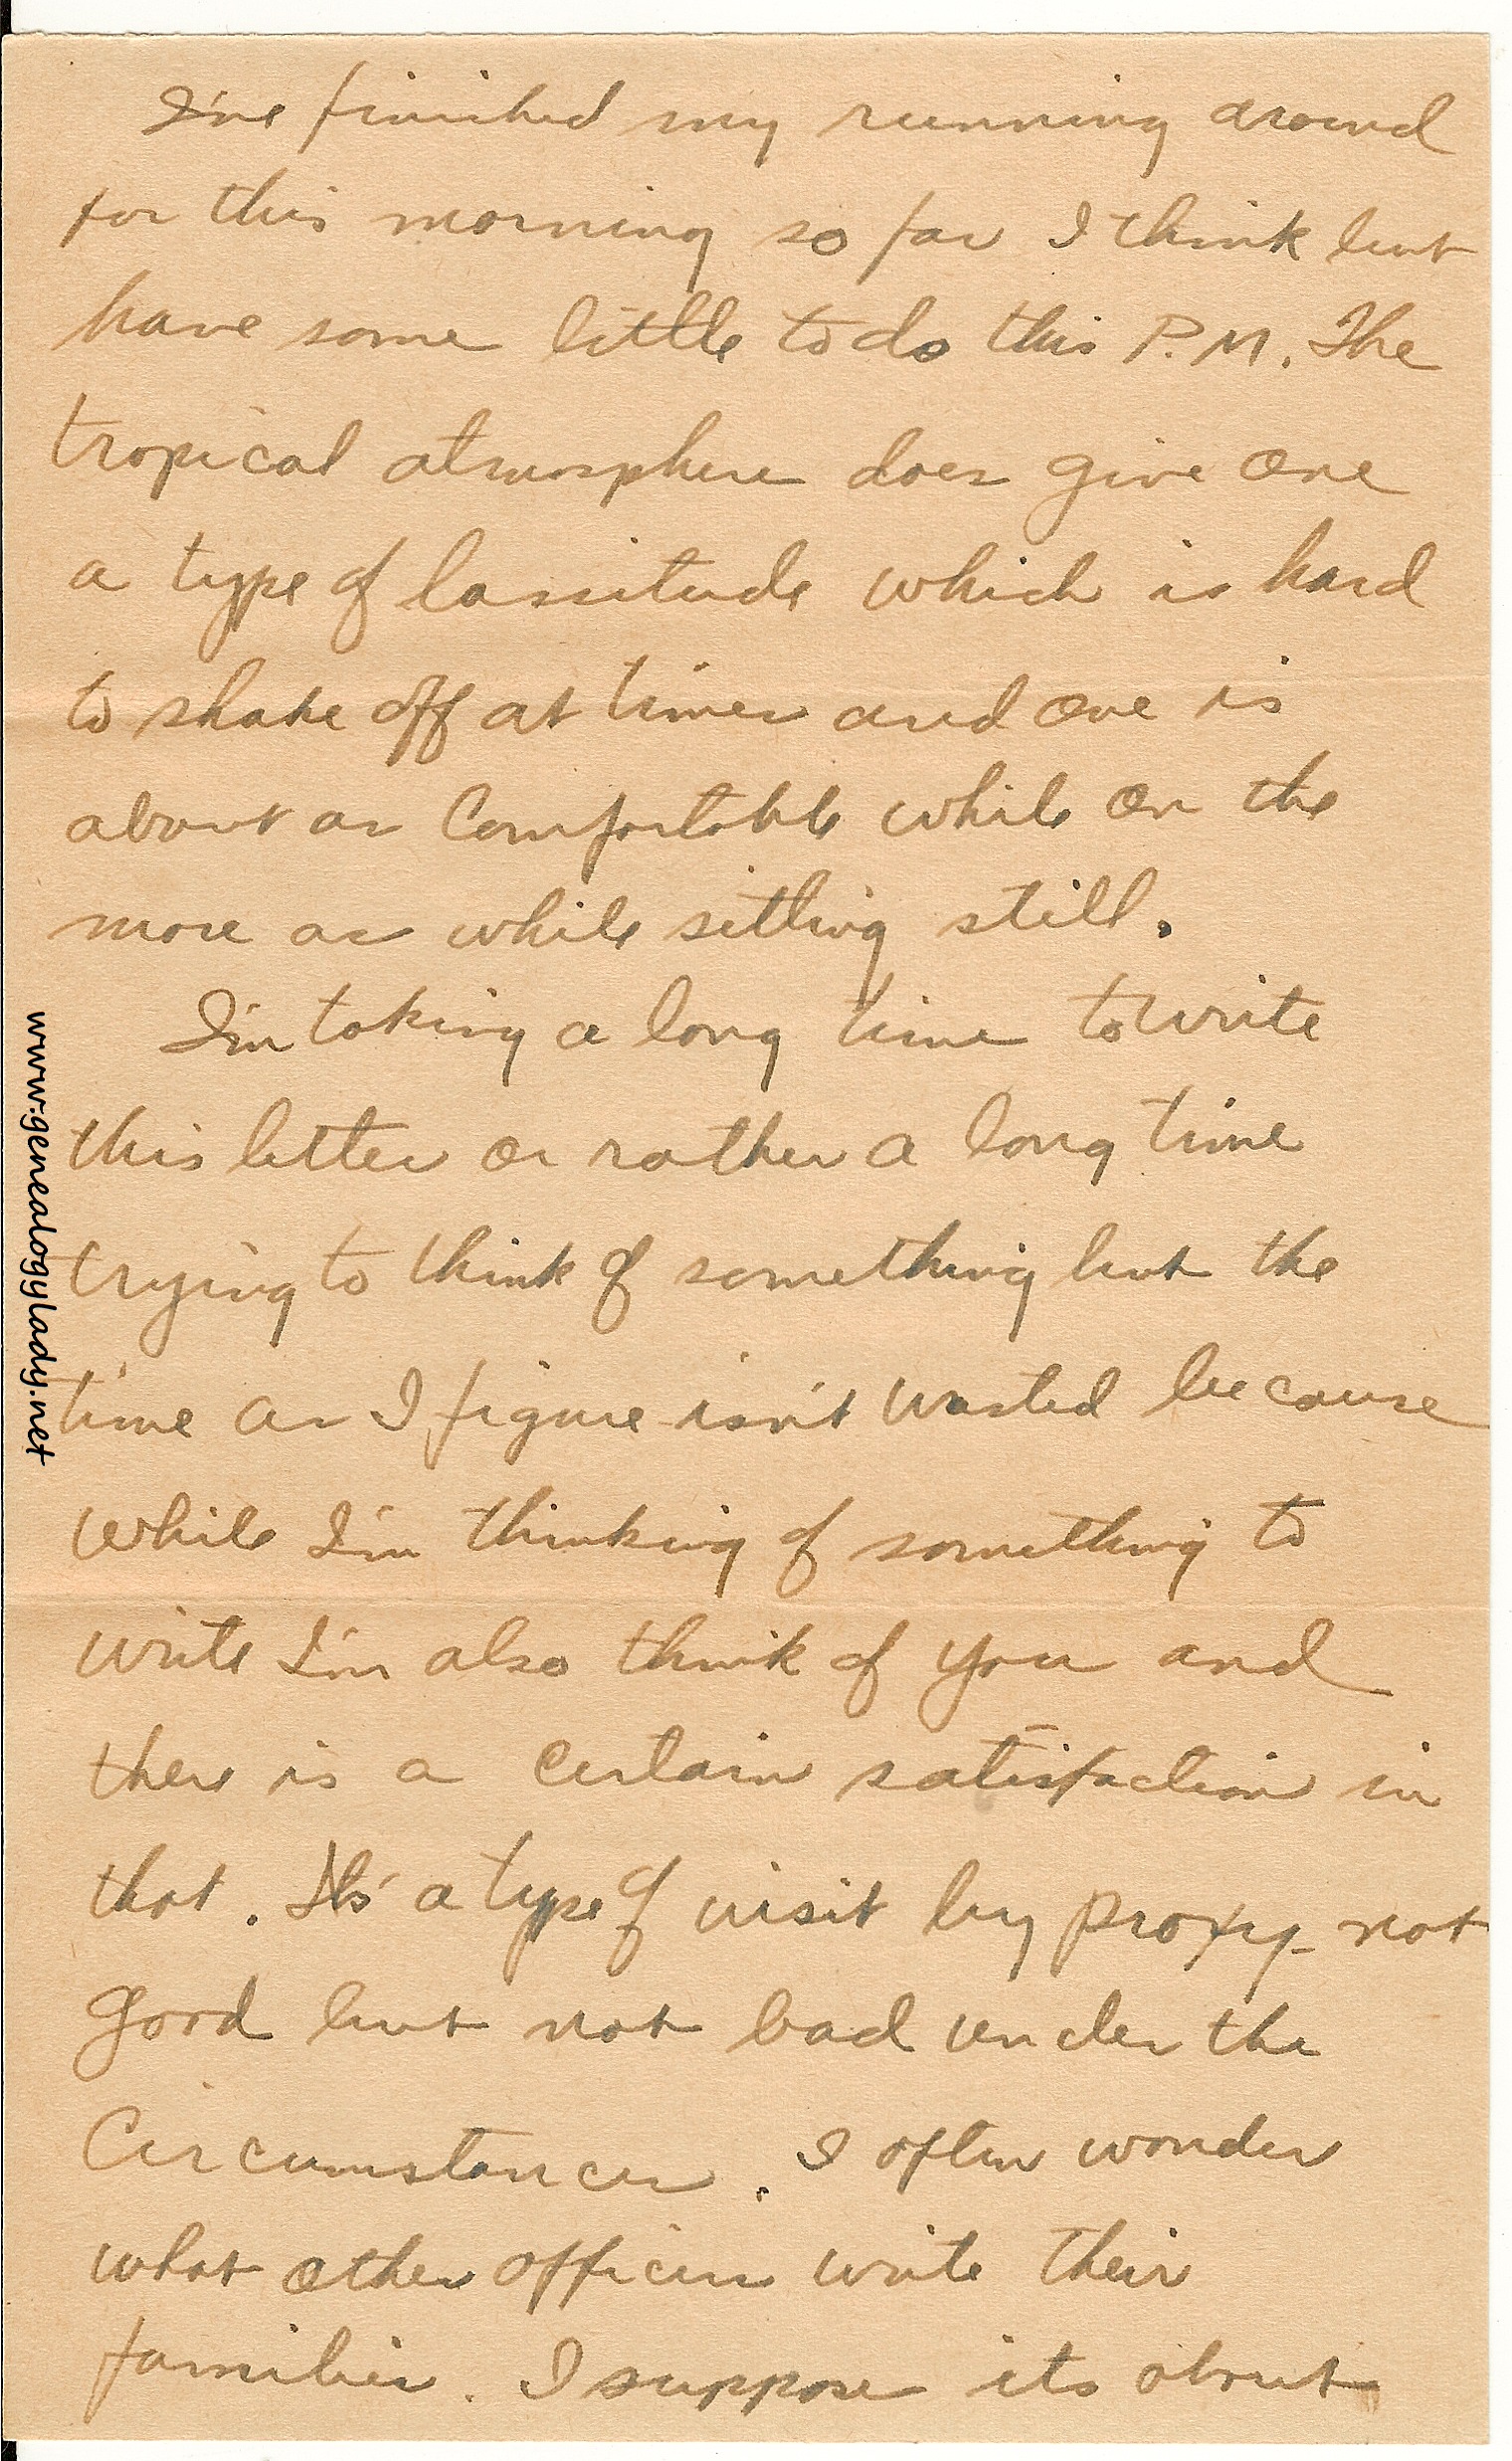 I've finished my running around
for this morning so far I think but
have some little to do this P.M. The
tropical atmosphere does give one
a type of lassitude which is hard
to shake off at times and one is
about as comfortable while on the
move as while sitting still.
I'm taking a long time to write
this letter or rather a long time
trying to think of something but the
time as I figure isn't wasted because
while I'm thinking of something to
write I'm also think of you and
there is a certain satisfaction in
that. Its a type of visit by proxy - not
good but not bad under the
Circumstances. I often wonder
what other officers write their
families. I suppose its about
www.genealogylady.net